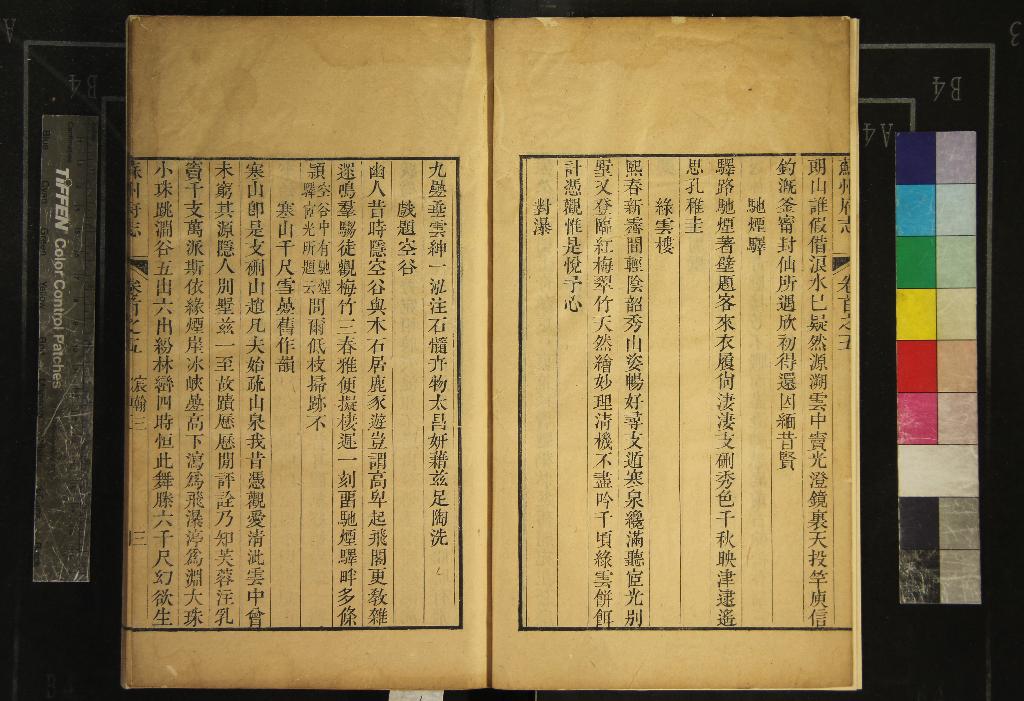 蘇州府志
卷首之五
朗山誰假借浪水已疑然源溯雲中竇光澄鏡裏天投竿庾信
釣漑釜甯封仙所遇欣初得還因緬昔賢
馳煙驛
驛路馳煙著壁題客來衣履尙淒淒支硎秀色千秋映津逮遙
思孔稚圭
綠雲樓
熙春新霽間輕陰韶秀山姿暢好尋支遁寒泉纔滿聽宦光别
墅又登臨紅梅翠竹天然繪妙理淸機不盡吟千頃綠雲餠餌
計憑觀惟是悅予心
對瀑
九疊垂雲紳一泓注石髓卉物太昌姸藉兹足陶洗
戲題空谷
幽人昔時隱空谷與木石居鹿豕遊豈謂高卑起飛閣更敎雜
遝鳴羣騶徒觀梅竹三春雅便擬棲遲一刻畱馳煙驛畔多條
頴空谷中有馳煙驛宦光所題云問爾低枝掃跡不
寒山千尺雪疊舊作韻
寒山卽是支硎山趙凡夫始疏山泉我昔憑觀愛淸泚雲中曾
未窮其源隱人別墅兹一至故蹟歷歷閒評詮乃知芙蓉注乳
竇千支萬派斯依緣煙崖冰峽疊高下瀉爲飛瀑渟爲淵大珠
小珠跳澗谷五出六出紛林巒四時恒此舞滕六千尺幻欲生
蘇州府志
卷首之五
宸翰三
三
TIFFEN Color Control Patches
B4
B4
A4